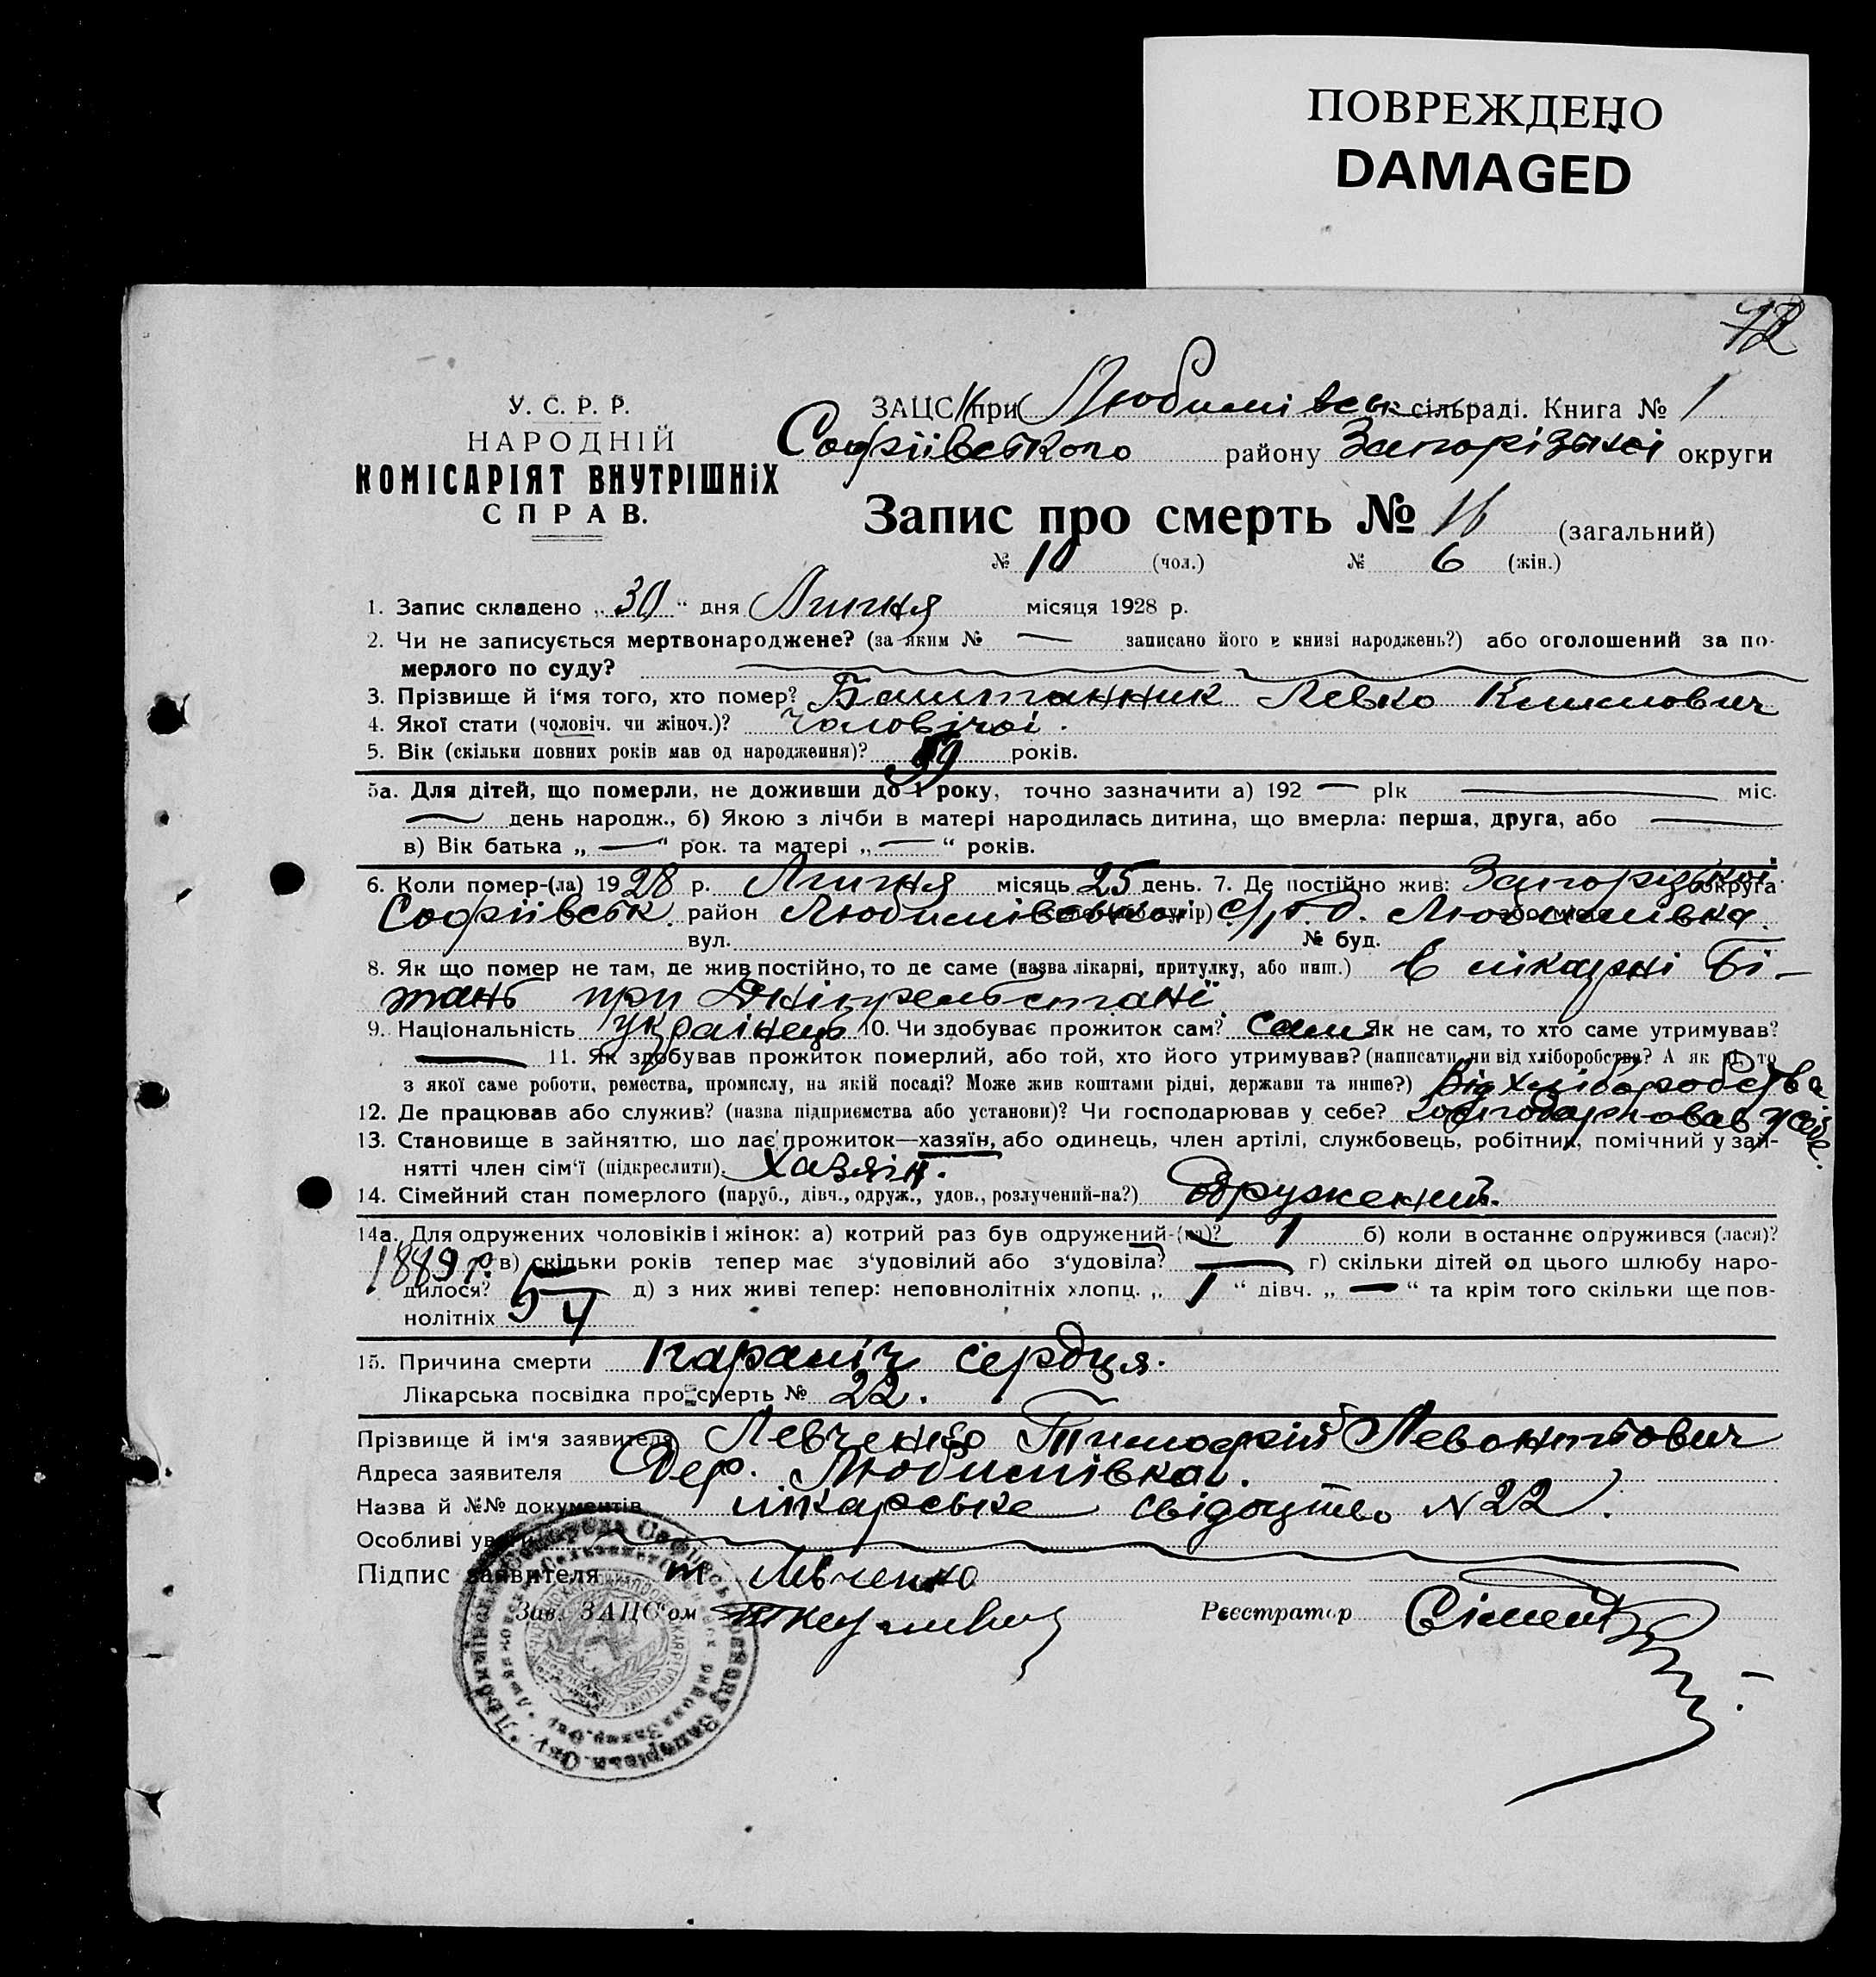 ПОВРЕЖДЕНО
DAMAGED
42
У. С. Р. Р.
НАРОДНІЙ
КОМІСАРІЯТ ВНУТРІШНіХ
СПРАВ.
ЗАЦС при Любимівськ сільраді. Книга № 1
Софіївського району Запорізької округи
Запис про смерть № 16 (загальний)
№ 10 (чол.) № 6 (жін.)
1. Запис складено „30“ дня Липня місяця 1928 р.
2. Чи не записується мертвонароджене? (за яким № — записано його в книзі народжень?) або оголошений за по-
мерлого по суду?
3. Прізвище й і'мя того, хто помер? Баштанник Левко Климович
4. Якої стати (чоловіч. чи жіноч.)? чоловічої.
5. Вік (скільки повних років мав од народження)? 59 років.
5а. Для дітей, що померли, не доживши до 1 року, точно зазначити а) 192 — рік — міс.
— день народж., б) Якою з лічби в матері народилась дитина, що вмерла: перша, друга, або —
в) Вік батька „ — “ рок. та матері „ — “ років.
6. Коли помер-(ла) 1928 р. Липня місяць 25 день. 7. Де постійно жив: Запорізької округа
Софіївськ район Любимівської с/р д. Любимівка.
вул. № буд.
8. Як що помер не там, де жив постійно, то де саме (назва лікарні, притулку, або инш.) в лікарні Бі-
тань при Дніпрельстані
9. Національність українець 10. Чи здобуває прожиток сам? сам Як не сам, то хто саме утримував?
— 11. Як здобував прожиток померлий, або той, хто його утримував? (написати чи від хліборобства? А як ні, то
з якої саме роботи, ремества, промислу, на якій посаді? Може жив коштами рідні, держави та инше?) Від хліборобства
12. Де працював або служив? (назва підприємства або установи)? Чи господарював у себе? господарював у себе.
13. Становище в зайняттю, що дає прожиток—хазяїн, або одинець, член артілі, службовець, робітник, помічний у зай-
нятті член сім'ї (підкреслити). хазяїн.
14. Сімейний стан померлого (паруб., дівч., одруж., удов., розлучений-на?) Одружений.
14а. Для одружених чоловіків і жінок: а) котрий раз був одружений-(на)? 1 б) коли в останнє одружився (лася)?
1889 р. в) скільки років тепер має з'удовілий або з'удовіла? — г) скільки дітей од цього шлюбу наро-
дилося? 5 д) з них живі тепер: неповнолітніх хлопц. „ 1 “ дівч. „ — “ та крім того скільки ще пов-
нолітніх 4
15. Причина смерти параліч сердця.
Лікарська посвідка про смерть № 22.
Прізвище й ім'я заявителя Левченко Тимофій Левонтович
Адреса заявителя Дер. Любимівка.
Назва й №№ документів лікарське свідоцтво N 22.
Особливі уваги
Підпис заявителя т Левченко
Зав. ЗАЦС'ом
Реєстратор